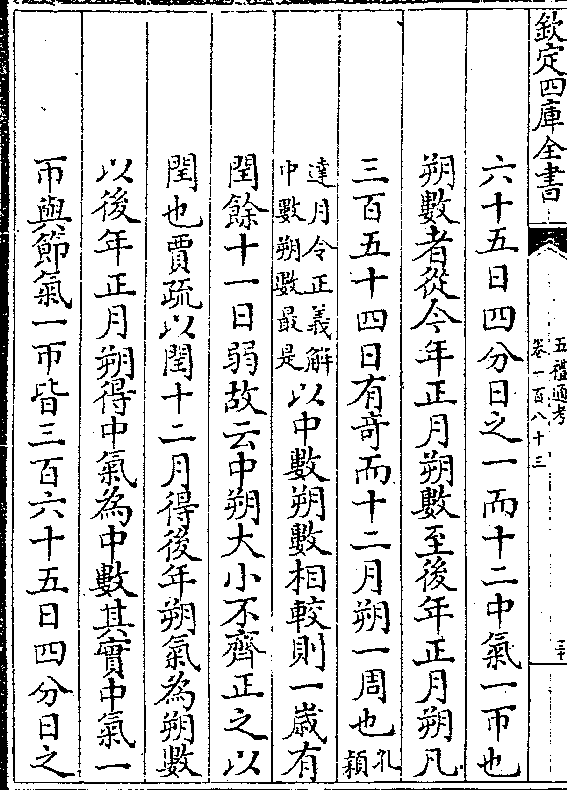 欽定四庫全書
五禮通考
卷一百八十三
六十五日四分日之一而十二中氣一帀也
朔數者從今年正月朔數至後年正月朔凡
三百五十四日有竒而十二月朔一周也孔穎
達月令正義解中數朔數最是以中數朔數相較則一歲有
閏餘十一日弱故云中朔大小不齊正之以
閏也賈疏以閏十二月得後年朔氣為朔數
以後年正月朔得中氣為中數其實中氣一
帀與節氣一帀皆三百六十五日四分日之